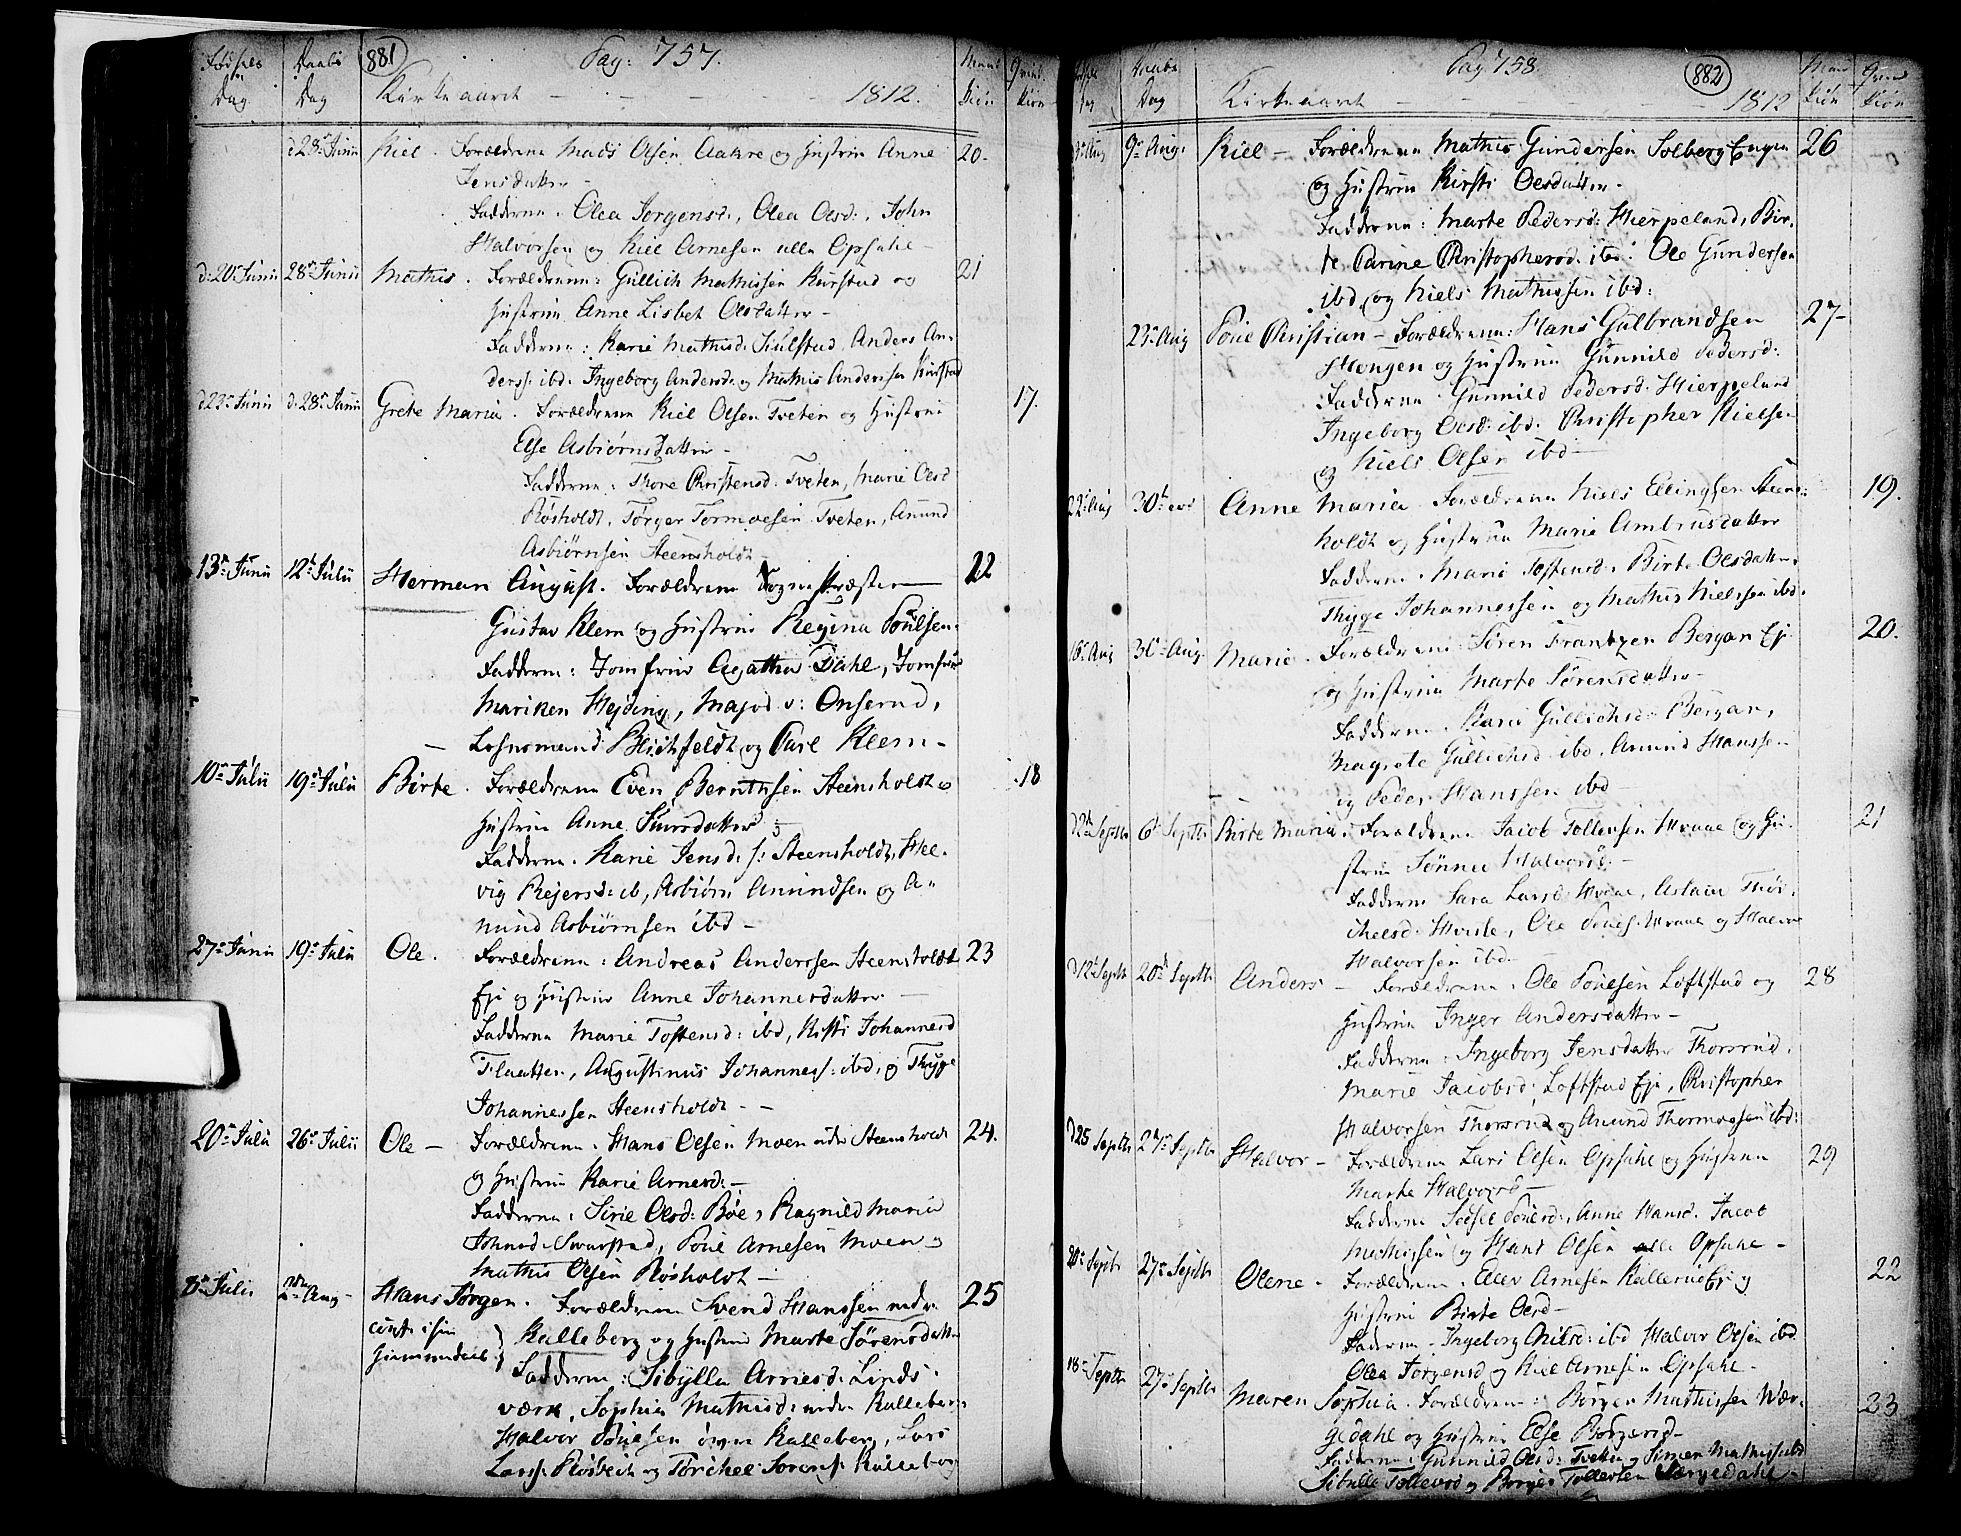 Fødsels Daabs 881 Pag: 757. Mand Qvind
Dag. Dag Kirkeaaret — — — — 1812. Kiøn Kiøn
d 28. Junii Kiel. Forældrene Mads Olsen Aakre og Hustrue Anne 20.
Jensdatter —
Fadderne. Olea Jorgensd., Olea Olesd., John
Halvorsen og Kiel Arnesen alle Opsahl —
d. 20. Junii 28. Junii Mathis. Forældrene: Gullich Mathissen Kurstad og 21
Hustrue Anne Lisbet Olesdatter —
Fadderne: Karie Mathisd. Kiulstad, Anders An-
derss: ibd. Ingeborg Andersd. og Mathis Andersen Kiulstad
d 23. Junii d. 28. Junii Grete Maria. Forældrene Kiel Olsen Tveten og Hustrue 17.
Else Asbiørnsdatter —
Fadderne. Thore Christensd. Tveten, Marie Olesd
Røsholdt, Torger Tormoesen Tveten, Anund
Asbiørnsen Steensholdt —
13. Junii 12. Julii Herman August. Forældrene Sognepræsten 22
Gustav Klem og Hustrue Regina Poulsen.
Fadderne: Jomfrue Agatha Dahl, Jomfrue
Mariken Hejding, Major v: Onserud,
— Losnomand Blichfeldt og Carl Klem —
10. Julii 19. Julii Birte. Forældrene Even Bernthsen Steensholdt og 18
Hustrue Anne
Fadderne. Karie Jensd. Steensholdt, Hel-
vig Rejersd: ib, Asbiørn Amundsen og A-
nund Asbiørnsen ibd —
27. Junii 19. Julii Ole. Forældrene: Andreas Anderssen Steensholdt 23
Eje og Hustrue Anne Johannesdatter —
Fadderne Marie Tostensd: ibd, Kisti Johannesd
Flaatten, Augustinus Johanness: ibd, og Thyge
Johannessen Steensholdt — —
20. Julii 26. Julii Ole — Forældrene. Hans Olsen Moen under Steensholdt 24.
og Hustrue Karie Arnesd: —
Fadderne: Sirie Olesd: Bøe, Ragnild Maria
Johnsd. Svarstad, Poul Arnesen Moen og
Mathis Olsen Røsholdt —
8. Julii 2den Aug — Hans Jørgen. Forældrene Svend Hanssen nedre 25
Kalleberg og Hustrue Marte Sørensdatter
Fadderne: Sibylla Arnesd. Linds-
værn, Sophia Mathisd: nedre Kalleberg,
Halvor Pouelsen øvre Kalleberg, Lars
Larss. Røsbech og Torichel Sorens: Kalleberg
Daabs Pag 758. 882 Mand Qvind
Dag Kirkeaaret — — — — 1812 Kiøn Kiøn
9. Aug. Kiel — Forældrene Mathis Gundersen Solberg Engen 26
og Hustrue Kirsti Olesdatter —
Fadderne: Marte Pedersd: Hierpeland, Bir-
te Carine Christophersd. ibd. Ole Gundersen
ibd, og Niels Mathissen ibd:
23. Aug Poul Christian — Forældrene: Hans Gulbrandsen 27-
Hongen og Hustrue Gunnild Pedersd:
Fadderne. Gunnild Pedersd. Hierpeland
Ingeborg Olesd: ibd. Christopher Kielsen
og Niels Olsen ibd —
22. Aug 30. Anne Maria. Forældrene Niels Ellingsen Steens- 19.
holdt og Hustrue Marie Ambrusdatter
Fadderne. Marie Tostensd. Birte Olesdatter,
Thyge Johannessen og Mathis Nielssen ibd.
16. Aug 30. Aug. Marie. Forældrene: Søren Frantzen Bergan Ej- 20.
og Hustrue Marte Sørensdatter —
Fadderne. Karie Gullichsd. Bergan,
Magrete Gullichsd. ibd. Anund Hanssen
og Peder Hanssen ibd —
6. Septbr Birte Maria. Forældrene Jacob Tollevsen Hvaal og Hu- 21
strue Sønnee Halvorsd. —
Fadderne Sara Larsd. Hvaal, Aslaug Thor-
ichelsd. , Ole Pouels. Hvaal og Halvor
Halvorsen ibd. —
d 12. Septbr 20. Septbr Anders — Forældrene. Ole Pouelsen Loftstad og 28
Hustrue Inger Andersdatter —
Fadderne. Ingeborg Jensdatter Thorsrud.
Marie Jacobsd. Loftstad Eje, Christopher
Halvorsen Thorsrud og Anund Thormoessen ibd:
d 25 Septbr 27. Septbr Halvor — Forældrene Lars Olsen Opsahl og Hustrue 29
Marte Halvorsd —
Fadderne Pouelsd:, Anne Hansd. Jacob
Mathissen og Hans Olsen alle Opsahl —
20. Septbr 27. Septbr Olene. Forældrene. Ellev Arnesen Eje og 22
Hustrue Birte Olesd —
Fadderne. Ingeborg Nilsd: ibd Halvor Olsen ibd.
Olea Jorgensd og Kiel Arnesen Opsahl —
18. Septbr 27. Septbr Maren Sophia. Forældrene: Børger Mathissen Vær- 23
gedahl og Hustrue Else Børgersd —
Fadderne: Gunnild Olesd. Tveten, Simen Mathis: ibd
Sibille Tollevsd og Borger Tollevsen Værgedahl —